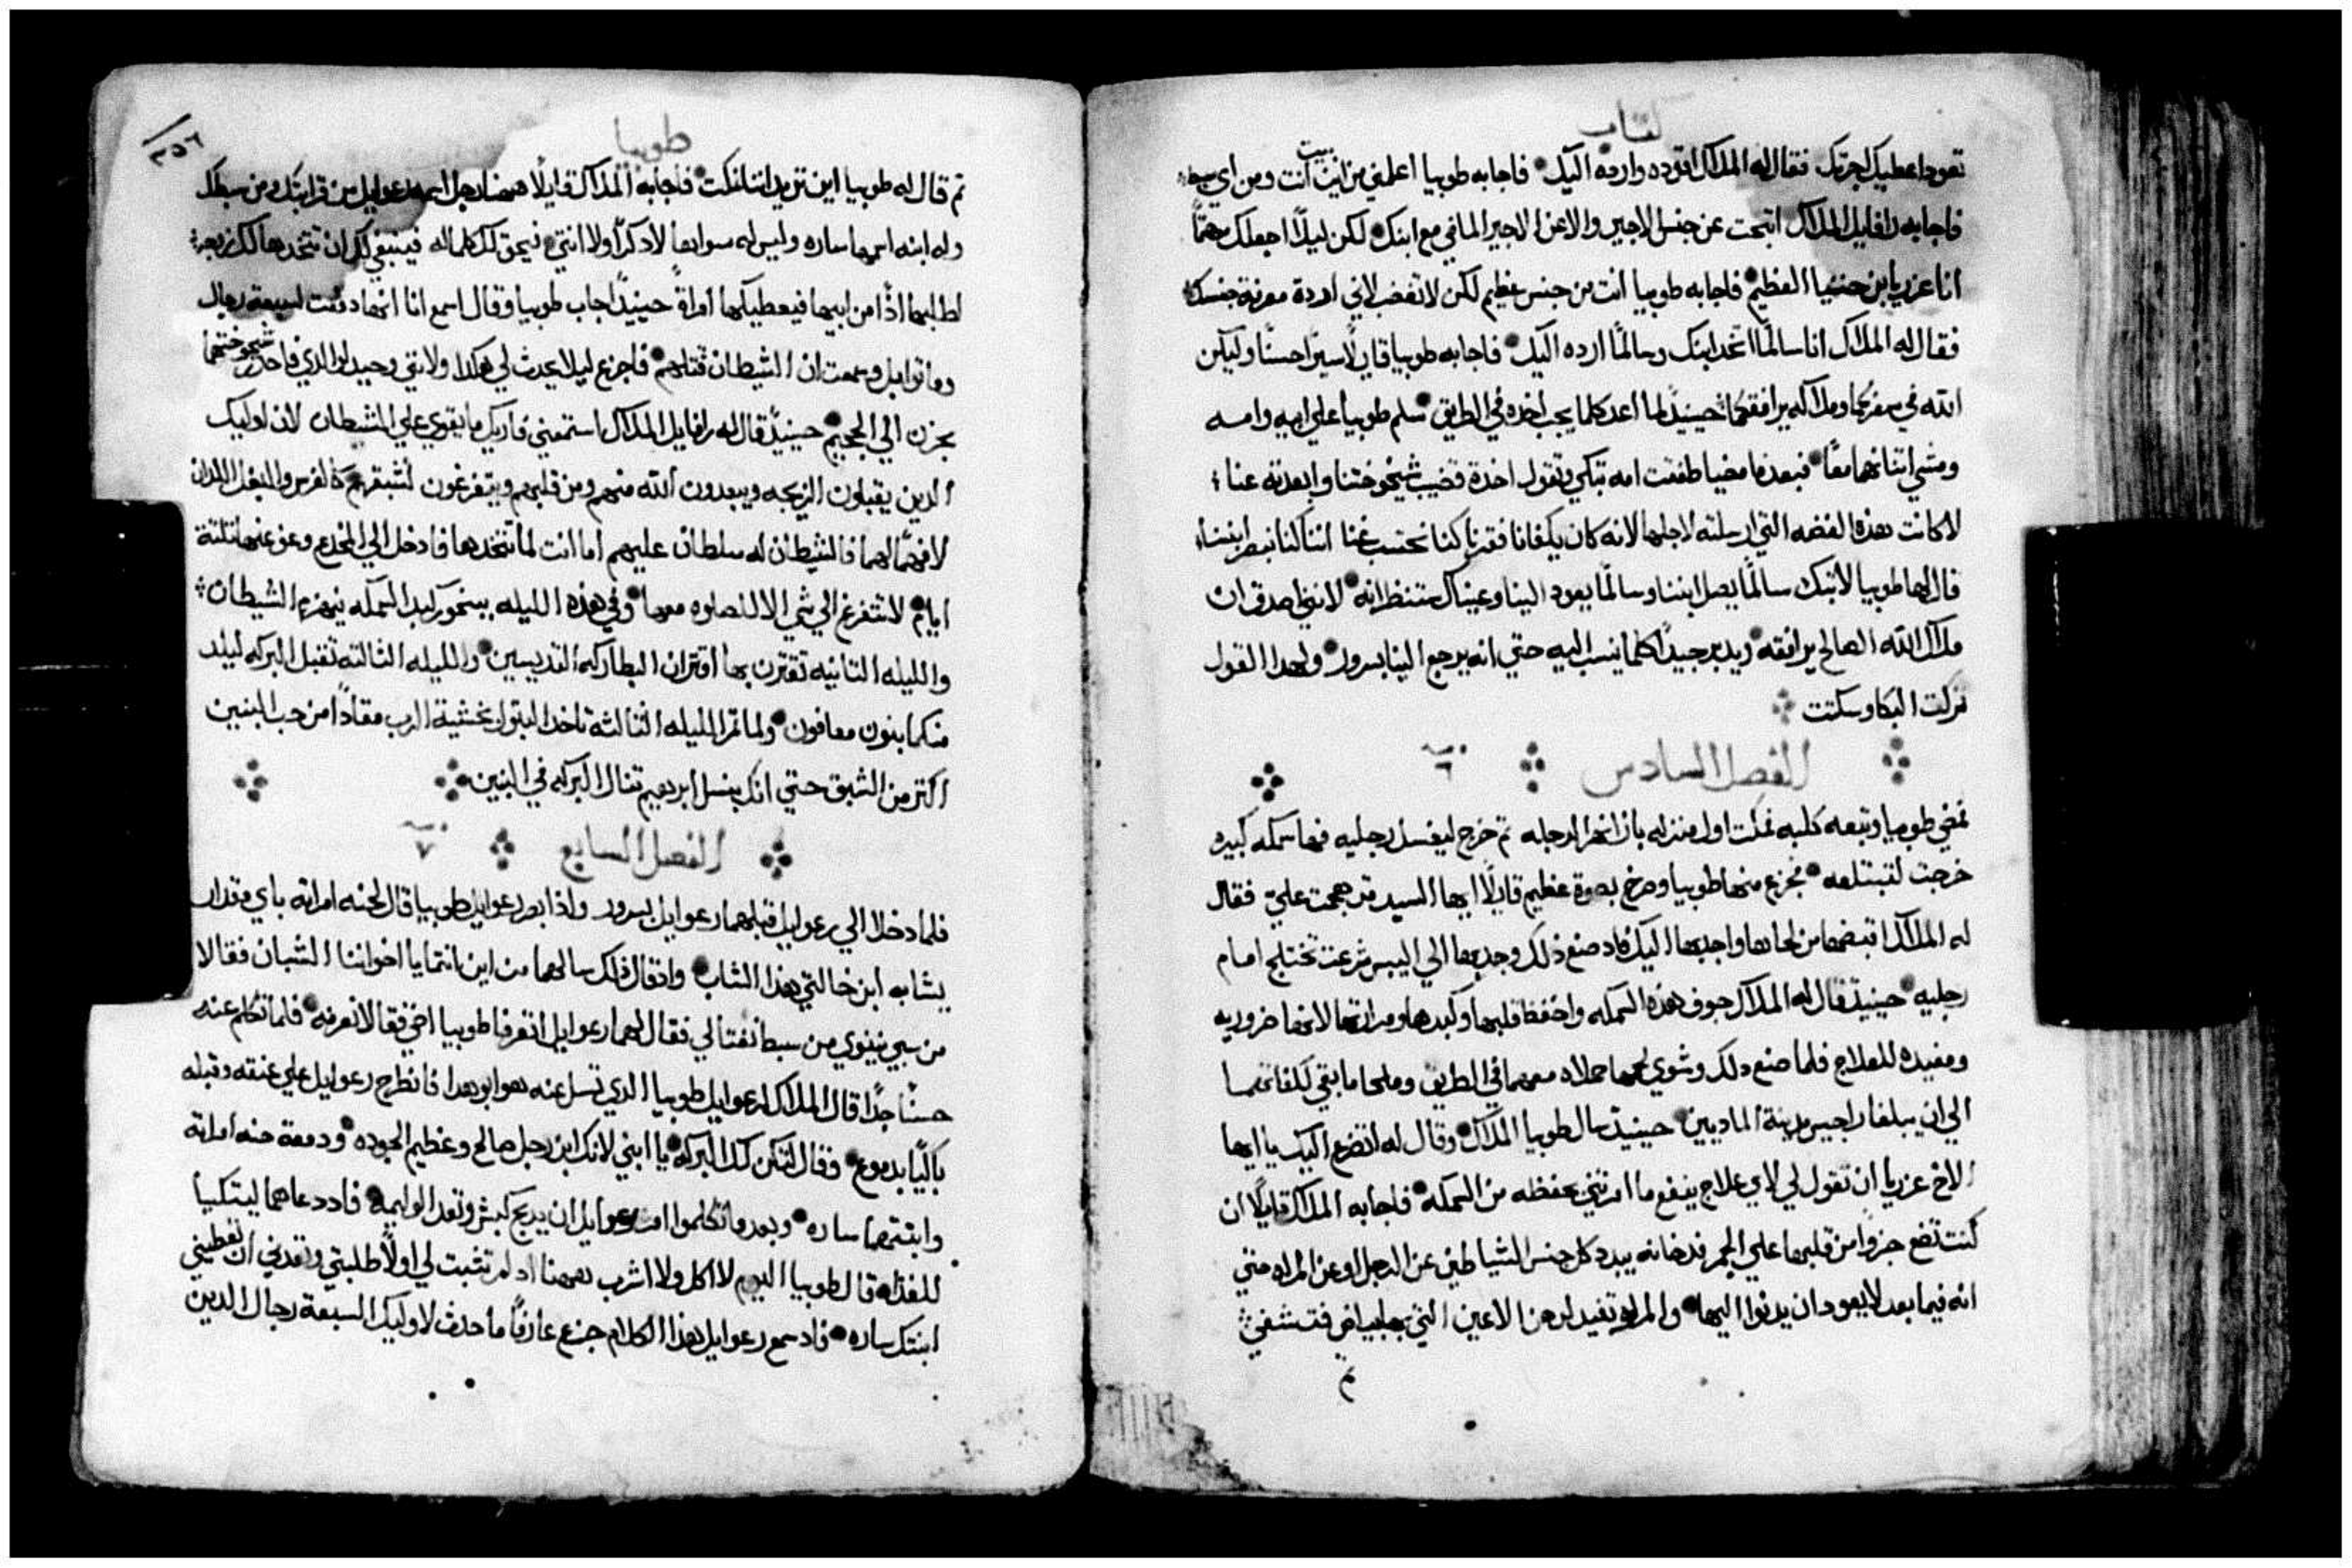 كتاب
تعود اعطيك اجرتك فقال له الملاك اقوده وارده اليك فاجابه طوبيا اعلمني من اين بيت انت ومن اي سبط
فاجابه رافاييل الملاك اتبحت عن جنس الاجير والا عن الاجير الماضي مع ابنك لكن ليلا اجعلك مهتما
انا عزريا بن حننيا العظيم فاجابه طوبيا انت من جنس عظيم لكن لا تغضب لاني اردة معرفة جنسك
فقال له الملاك انا سالما اتخد ابنك وسالما ارده اليك فاجابه طوبيا قايلا سيرا حسنا وليكن
الله في سفركما وملاكه يرافقكما حينيد لما اعد كلما يجب اخده في الطريق سلم طوبيا علي ابيه وامه
ومشي اتناهما معا فبعدما مضيا طفقت امه تبكي وتقول اخدة قضيب شيخوختنا وابعدته عنا
لا كانت هذه الفضه التي ارسلته لاجلها لانه كان يكفانا فقرنا كنا نحتسب غنا اننا كنا نبصر ابننا
قال لها طوبيا لا تبك سالما يصل ابننا وسالما يعود الينا وعيناك ستنظرانه لانني اصدق ان
ملاك الله الصالح يرافقه ويدبر جيدا كلما ينسب اليه حتي انه يرجع الينا بسرور ولهدا القول
تركت البكا وسكتت
الفصل السادس ٦
فمضي طوبيا وتبعه كلبه فمكت اول منزله بازا نهر الدجله تم خرج ليغسل رجليه فها سمكه كبيره
خرجت لتبتلعه فجزع منها طوبيا وصرخ بصوة عظيم قايلا ايها السيد قد هجمت علي فقال
له الملاك اقبضها من لحاها واجدبها اليك فاد صنع ذلك وجدبها الي اليبس شرعت تختلج امام
رجليه حينيد قال له الملاك جوف هذه السمكه واحفظ قلبها وكبدها ومرارتها لانها ضروريه
ومفيده للعلاج فلما صنع دلك وشوي لحمها حملاه معهما في الطريق وملحا ما بقي لكفاتهما
الي ان يبلغا راجيس مدينة الماديين حينيد سال طوبيا الملاك وقال له اتضرع اليك يا ايها
الاخ عزريا ان تقول لي لاي علاج ينفع ما امرتني بحفظه من السمكه فاجابه الملاك قايلا ان
كنت تضع جزوا من قلبها علي الجمر فدخانه يبدد كل جنس الشياطين عن الرجل او عن المراه حتي
انه فيما بعد لا يعود ان يدنوا اليها والمراره تفيد لدهن الاعين التي بها بياض فتشفي
تم
طوبيا
٢٥٦
تم قال له طوبيا اين تريد اننا نمكت فاجابه الملاك قايلا ههنا رجل اسمه رعوايل من قرابتك ومن سبطك
وله ابنه اسمها ساره وليس له سواها لا دكرا ولا انتي فيحق لك كلما له فينبغي لك ان تتخدها لك زيجه
اطلبها اذا من ابيها فيعطيكها امراة حينيد اجاب طوبيا وقال اسمع انا انها دفعت لسبعة رجال
وماتوا بل وسمعت ان الشيطان قتلهم فاجزع ليلا يحدث لي هكدا ولانني وحيد لوالدي فاحدر شيخوختهما
بحزن الي الجحيم حينيد قال له رافاييل الملاك استمعني فاريك ما يقوي علي الشيطان لان اوليك
الدين يقبلون الزيجه ويبعدون الله منهم ومن قلبهم ويتفرغون لشبقهم كالفرس والبغل اللدان
لا فهما لهما فالشيطان له سلطان عليهم اما انت لما تتخدها فادخل الي المخدع وعف عنها تلتة
ايام لا تتفرغ الي شي الا للصلوه معها وفي هذه الليله ببخور كبد السمكه ينهزم الشيطان
والليله التانيه تقترن بها اقتران البطاركه القديسين والليله التالته تقبل البركه ليلد
منكما بنون معافون ولما تمر الليله الثالثة تاخد البتول بخشية الرب مقادا من حب البنين
اكتر من الشبق حتي انك بنسل ابرهيم تنال البركه في البنين
الفصل السابع ٧
فلما دخلا الي رعوايل قبلهما رعوايل بسرور واذا بصر رعوايل طوبيا قال لحنه امراته باي مقدار
يشابه ابن خالتي هذا الشاب واد قال ذلك سالهما من اين انتما يا اخواننا الشبان فقالا
من سبي نينوي من سبط نفتالي فقال لهما رعوايل اتعرفا طوبيا اخي فقالا نعرفه فلما تكلم عنه
حسنا جدا قال الملاك لرعوايل طوبيا الدي تسل عنه هو ابو هدا فانطرح رعوايل علي عنقه وقبله
باكيا بدموع وقال لتكن لك البركه يا ابني لانك ابن رجل صالح وعظيم الجوده ودمعة حنه امراته
وابنتهما ساره وبعدما تكلموا امر رعوايل ان يدبح كبش وتعد الوليمه فاد دعاهما ليتكيا
للغداه قال طوبيا اليوم لا اكل ولا اشرب ههنا اد لم تتبت لي اولا طلبتي وتعدني ان تعطيني
ابنتك ساره فاد سمع رعوايل هذا الكلام جزع عارفا ما حدث لاوليك السبعة رجال الدين